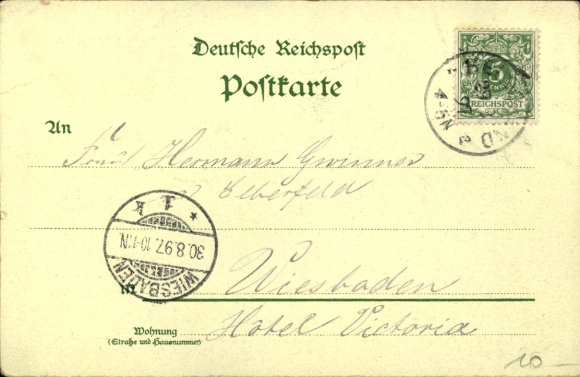 Deutsche Reichspost
Postkarte
5
REICHSPOST
4-5N
An
Frau Hermann Gwinner
Elberfeld
1 k
30.8.97. 10-11N.
WIESBADEN
in Wiesbaden
Wohnung
(Straße und Hausnummer)
Hotel Victoria
10-